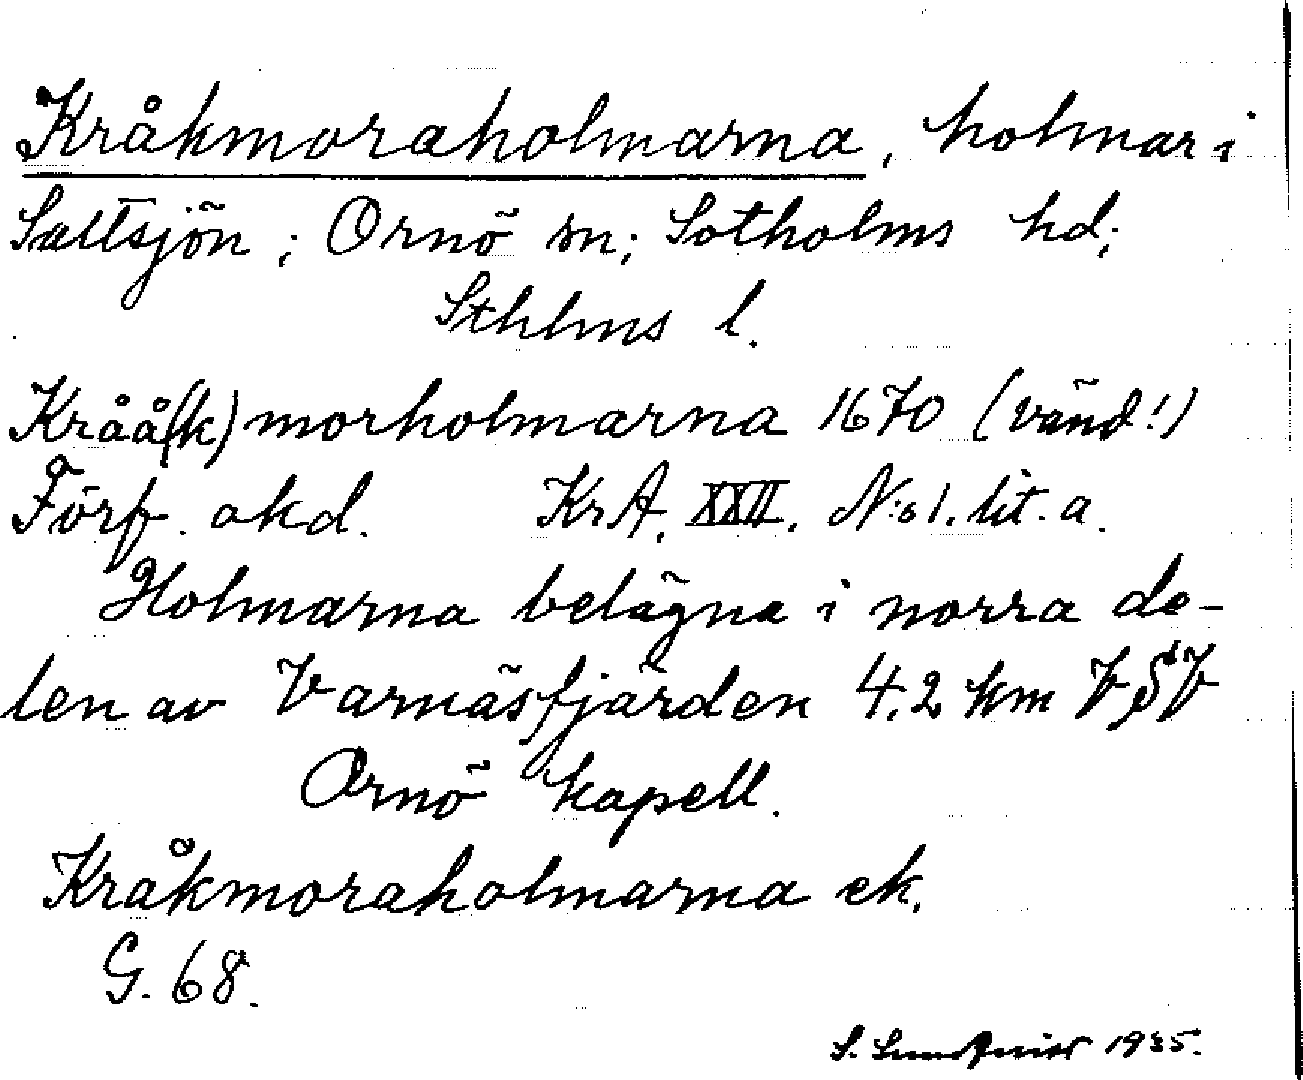 Kråkmoraholmarna, holmar i
Saltsjön; Ornö sn; Sotholms hd;
Sthlms l.
Kråå(k)morholmarna 1670 (vänd!)
Förf. okd. KrA. XXII. N:o 1. lit. a.
Holmarna belägna i norra de-
len av Varnäsfjärden 4,2 km VSV
Ornö kapell.
Kråkmoraholmarna ek.
G. 68.
S. 1935.